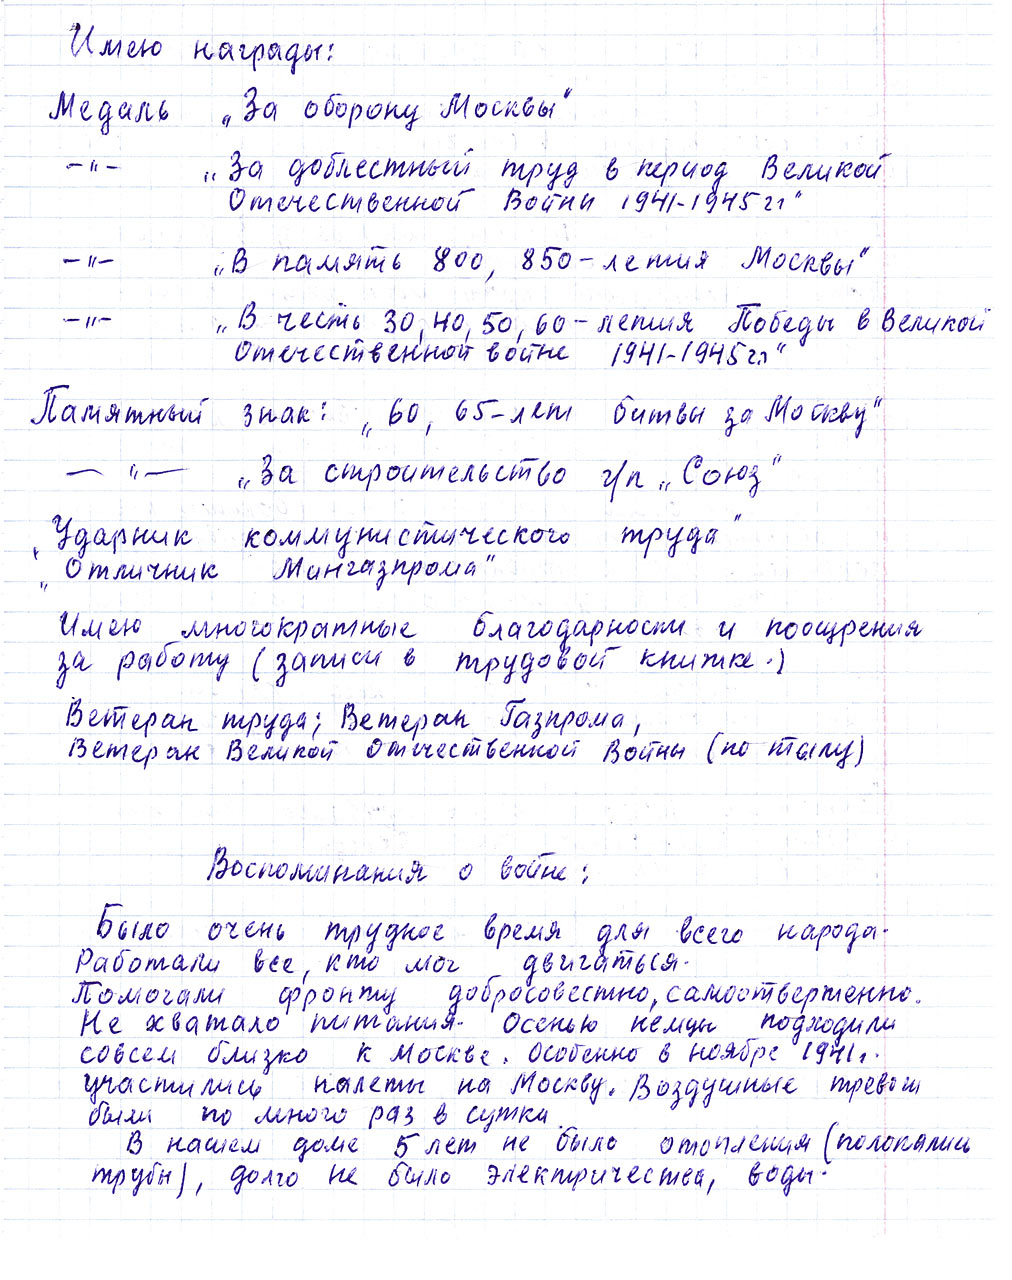 Имею награды:
Медаль „За оборону Москвы"
—"— „За доблестный труд в период Великой
Отечественной Войны 1941-1945 гг"
—"— „В память 800, 850-летия Москвы"
—"— „В честь 30, 40, 50, 60-летия Победы в Великой
Отечественной войне 1941-1945 гг"
Памятный знак: „60, 65-лет битвы за Москву"
—"— „За строительство г/п „Союз"
„Ударник коммунистического труда"
„Отличник Мингазпрома"
Имею многократные благодарности и поощрения
за работу (записи в трудовой книжке.)
Ветеран труда; Ветеран Газпрома,
Ветеран Великой Отечественной Войны (по тылу)
Воспоминания о войне:
Было очень трудное время для всего народа.
Работали все, кто мог двигаться.
Помогали фронту добросовестно, самоотверженно.
Не хватало питания. Осенью немцы подходили
совсем близко к Москве. Особенно в ноябре 1941г.
участились налеты на Москву. Воздушные тревоги
были по много раз в сутки
В нашем доме 5 лет не было отопления (полопались
трубы), долго не было электричества, воды.